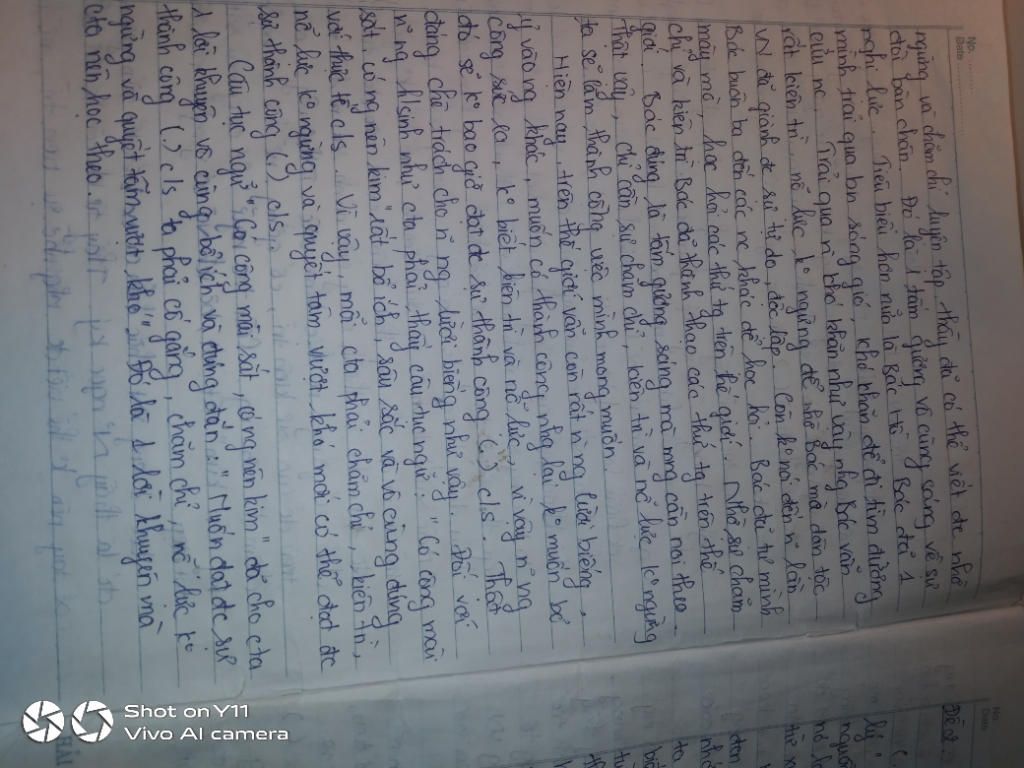 No.
Date
ngừng và chăm chỉ luyện tập thầy đã có thể viết đc nhờ
đôi bàn chân. Đó là 1 tấm gương vô cùng sáng về sự
nghị lực. Tiêu biểu hơn nữa là Bác Hồ. Bác đã 1
mình trải qua bn sóng gió, khó khăn để đi tìm đường
cứu nc. Trải qua n` khó khăn như vậy nhg Bác vẫn
rất kiên trì, nỗ lực ko ngừng để nhờ đó mà dân tộc
VN đã giành đc sự tự do, độc lập. Còn ko nói đến n` lần
Bác buôn ba đến các nc khác để học hỏi. Bác đã tự mình
mày mò, học hỏi các thứ tg trên thế giới. Nhờ sự chăm
chỉ và kiên trì Bác đã thành thạo các thứ tg trên thế
giới. Bác đúng là tấm gương sáng mà mng cần noi theo.
Thật vậy, chỉ cần sự chăm chỉ, kiên trì và nỗ lực ko ngừng
ta sẽ làm thành công việc mình mong muốn.
Hiện nay, trên thế giới vẫn còn rất n` ng lười biếng,
ỷ vào ng khác, muốn có thành công nhg lại ko muốn bỏ
công sức ra, ko biết kiên trì và nỗ lực, vì vậy n` ng
đó sẽ ko bao giờ đạt đc sự thành công (.) c/s. Thật
đáng chê trách cho n~ ng lười biếng như vậy. Đối với
n~ ng h/sinh như cta phải thấy câu tục ngữ: "Có công mài
sắt, có ng` nên kim" rất bổ ích, sâu sắc và vô cùng đúng
với thực tế c/s. Vì vậy, mỗi cta phải chăm chỉ, kiên trì,
nỗ lực ko ngừng và quyết tâm vượt khó mới có thể đạt đc
sự thành công (.) c/s.
Câu tục ngữ "Có công mài sắt, có ng` nên kim" đã cho cta
1 lời khuyên vô cùng bổ ích và đúng đắn "Muốn đạt đc sự
thành công (.) c/s ta phải cố gắng, chăm chỉ, nỗ lực ko
ngừng và quyết tâm vượt khó". Đó là 1 lời khuyên mà
cta nên học theo.
No.
Date
Shot on Y11
Vivo AI camera